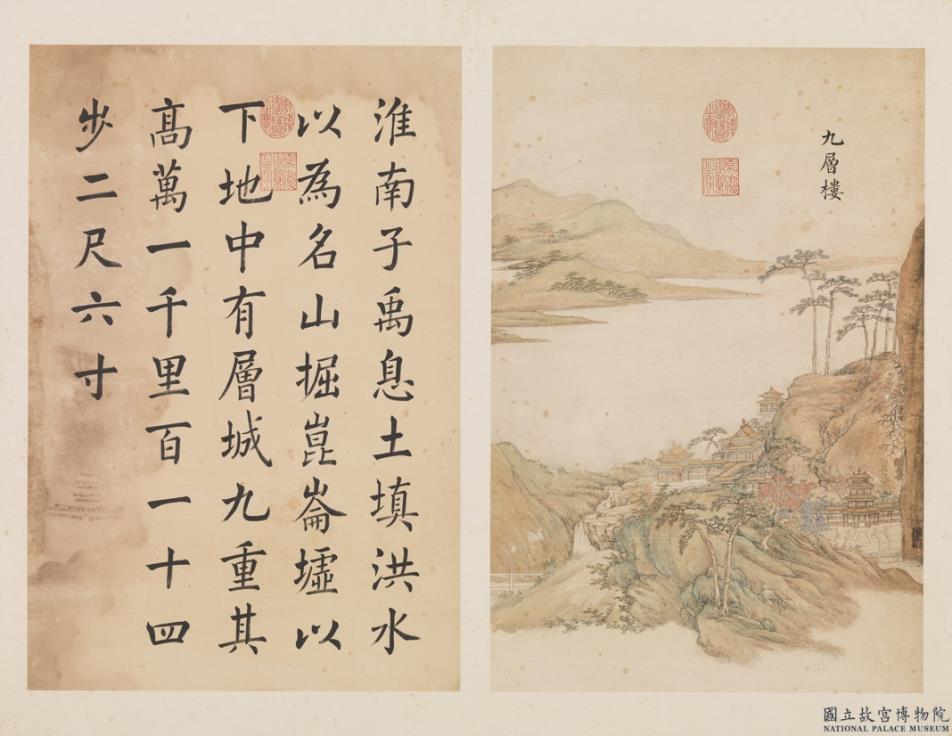 淮南子禹息土填洪水
以為名山掘崑崙墟以
下地中有層城九重其
高萬一千里百一十四
步二尺六寸
九層樓
國立故宮博物院
NATIONAL PALACE MUSEUM